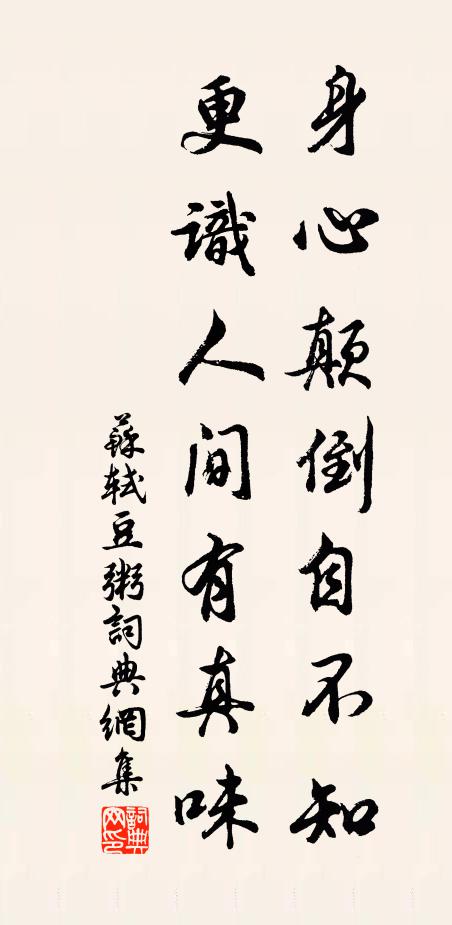 身心顛倒自不知
更識人间有真味
蘇軾豆粥詞典網集
詞典網印